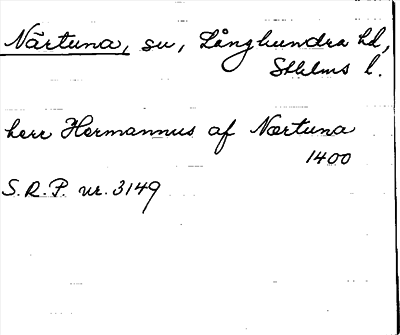 Närtuna, sn, Långhundra hd,
Sthlms l.
herr Hermannus af Nærtuna
1400
S.R.P. nr. 3149